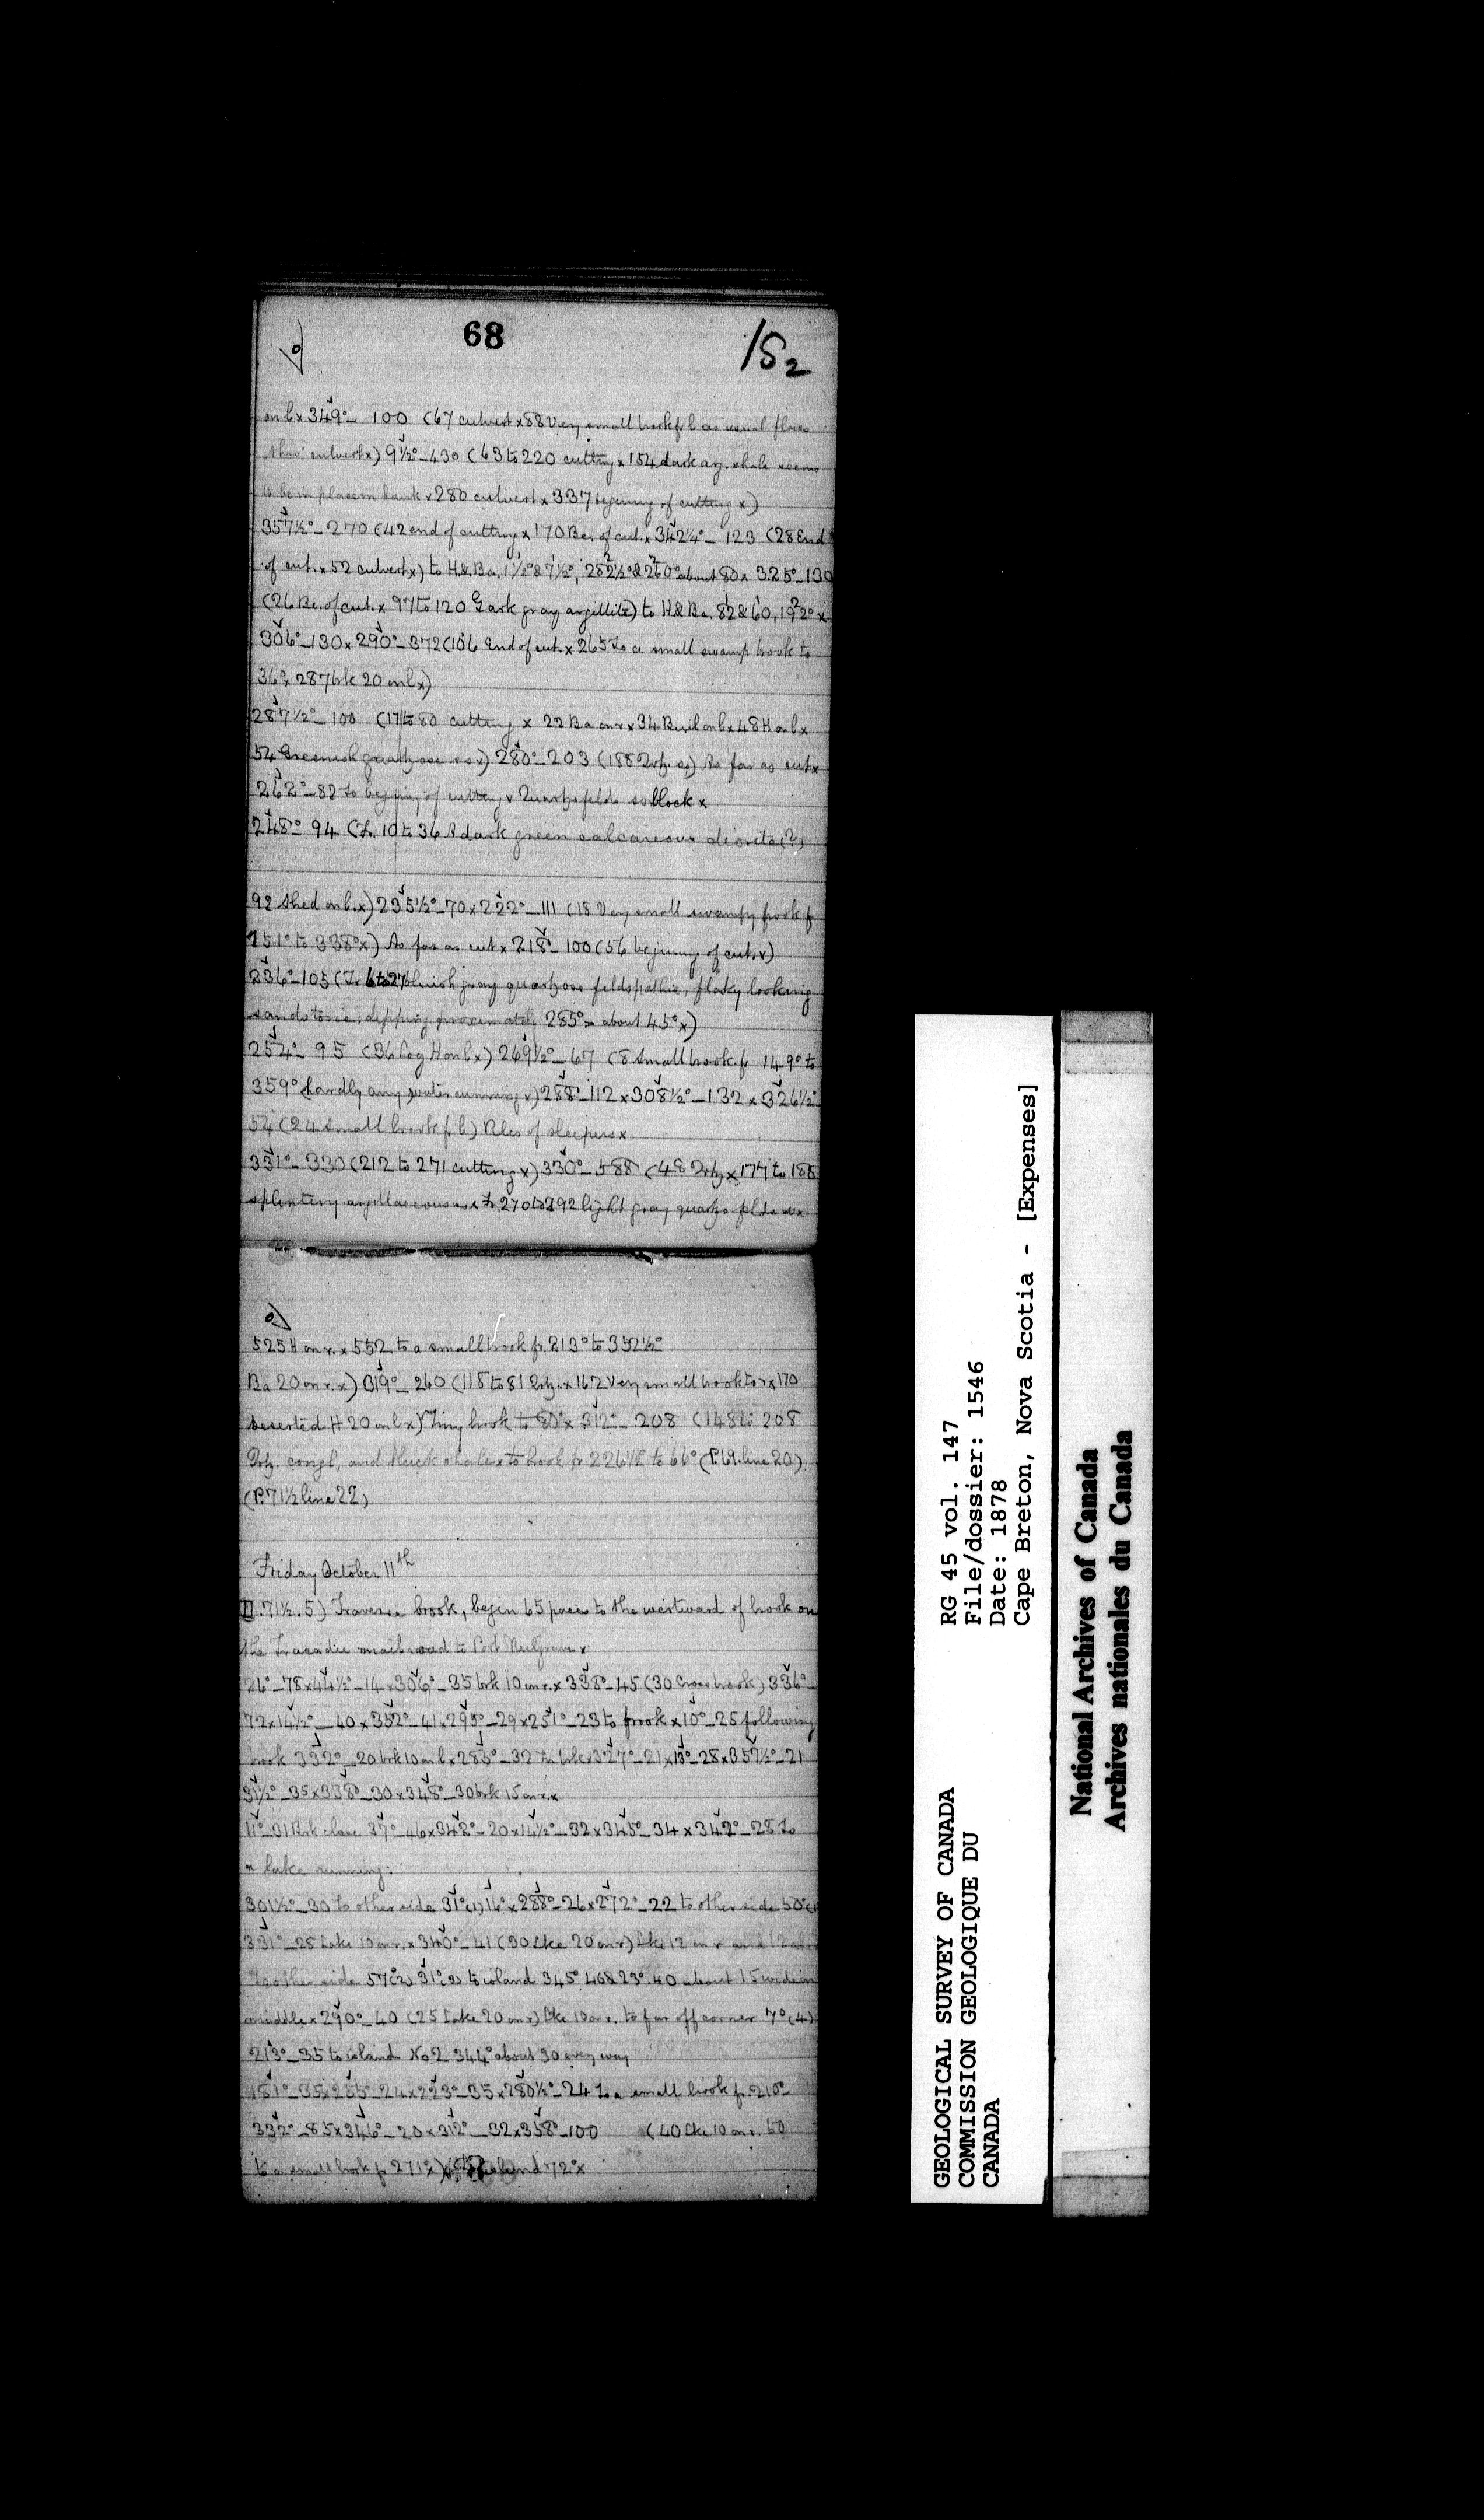 68
/S2
on l x 349° _ 100 (67 culvert x 88 Very small brook fr. l as usual flows
thro' culvert x) 9½° _ 430 (63 to 220 cutting x 154 dark arg. shale seems
to be in place in bank x 280 culvert x 337 beginning of cutting x)
357½° _ 270 (42 end of cutting x 170 Be. of cut. x 342¼° _ 123 (28 End
of cut. x 52 culvert x) to H. & Ba. 1½° & 7½°, 282½° & 260° about 80 x 325° _ 130
(26 Be. of cut. x 97 to 120 Dark gray argillite) to H & Ba. 82 & 60, 192° x
306° _ 130 x 290° _ 372 (106 End of cut. x 265 To a small swamp brook to
36° x 287 brk 20 on l x)
287½° _ 100 (17 to 80 cutting x 22 Ba on r x 34 on l x 48 H on l x
54 Greenish quartzose ss x) 280° _ 203 (188 ss) As far as cut x
262° _ 82 to beginning of cutting x block x
248° 94 (Fr. 10 to 36 A dark green calcareous diorite (?)
92 Shed on l. x) 235½° _ 70 x 222° _ 111 (18 Very small swampy brook fr
151° to 338° x) As far as cut x 218° _ 100 (56 beginning of cut. x)
236° _ 105 (Fr 6 to 27 bluish gray quartzose feldspathic, flaky looking
sandstone; dipping proximately 285° > about 45° x)
254° _ 95 (36 Log H on l x) 269½° _ 67 (8 Small brook fr 149° to
359° (hardly any water running x) 288° _ 112 x 308½° _ 132 x 326½° _
54 (24 small brook fr l) Piles of sleepers x
331° _ 330 (212 to 271 cutting x) 330° _ 588 (48 x 177 to 188
splintery argillaceous ss x Fr. 270 to 292 light gray
525 H on r. x 552 to a small brook fr. 213° to 352½°
Ba 20 on r. x) 319° _ 260 x 162 Very small brook to r x 170
Deserted H 20 on l x) Tiny brook to x 312° _ 208 (148 to 208
congl, and black shale x to brook fr 226½° to 66° (P. 69. line 20)
(P. 71½ line 22)
Friday October 11th
71½. 5) Traverse brook, begin 65 paces to the westward of brook on
the Tracadie mail road to Port Mulgrave x
26° _ 78 x 44½° _ 14 x 306° _ 35 brk 10 on r. x 338° _ 45 (30 Cross brook) 336° _
72 x 14½° _ 40 x 352° _ 41 x 295° _ 29 x 251° _ 23 to brook x 10° _ 25 following
brook 332° _ 20 brk 10 on l x 283° _ 32 To brk x 327° _ 21 x 13° _ 28 x 357½° _ 21
31½° _ 35 x 338° _ 30 x 348° _ 30 brk 15 on r. x
11° _ 31 Brk close 37° _ 46 x 342° _ 20 x 14½° _ 32 x 345° _ 34 x 342° _ 28 To
a lake running:
301½° _ 30 to other side 31° (1) 16° x 288° _ 26 x 272° _ 22 to other side 50°
331° _ 28 Lake 10 on r. x 340° _ 41 (30 Lke 20 on r) Lke 12 on r
To other side 57° (2) 31° (3) to island 345° 46 & 23° 40 about 15 wide in
middle x 290° _ 40 (25 Lake 20 on r) Lke 10 on r. to far off corner 7° (4)
213° _ 35 to island No 2 344° about 30 every way
181° _ 35 x 255° _ 24 x 223° _ 35 x 280½° _ 24 To a small brook fr. 210°
332° _ 85 x 346° _ 20 x 312° _ 32 x 358° _ 100 (40 Lke 10 on r. 50
to a small brook fr 271° x) 72° x
GEOLOGICAL SURVEY OF CANADA
COMMISSION GEOLOGIQUE DU
CANADA
RG 45 vol. 147
File/dossier: 1546
Date: 1878
Cape Breton, Nova Scotia - [Expenses]
National Archives of Canada
Archives nationales du Canada